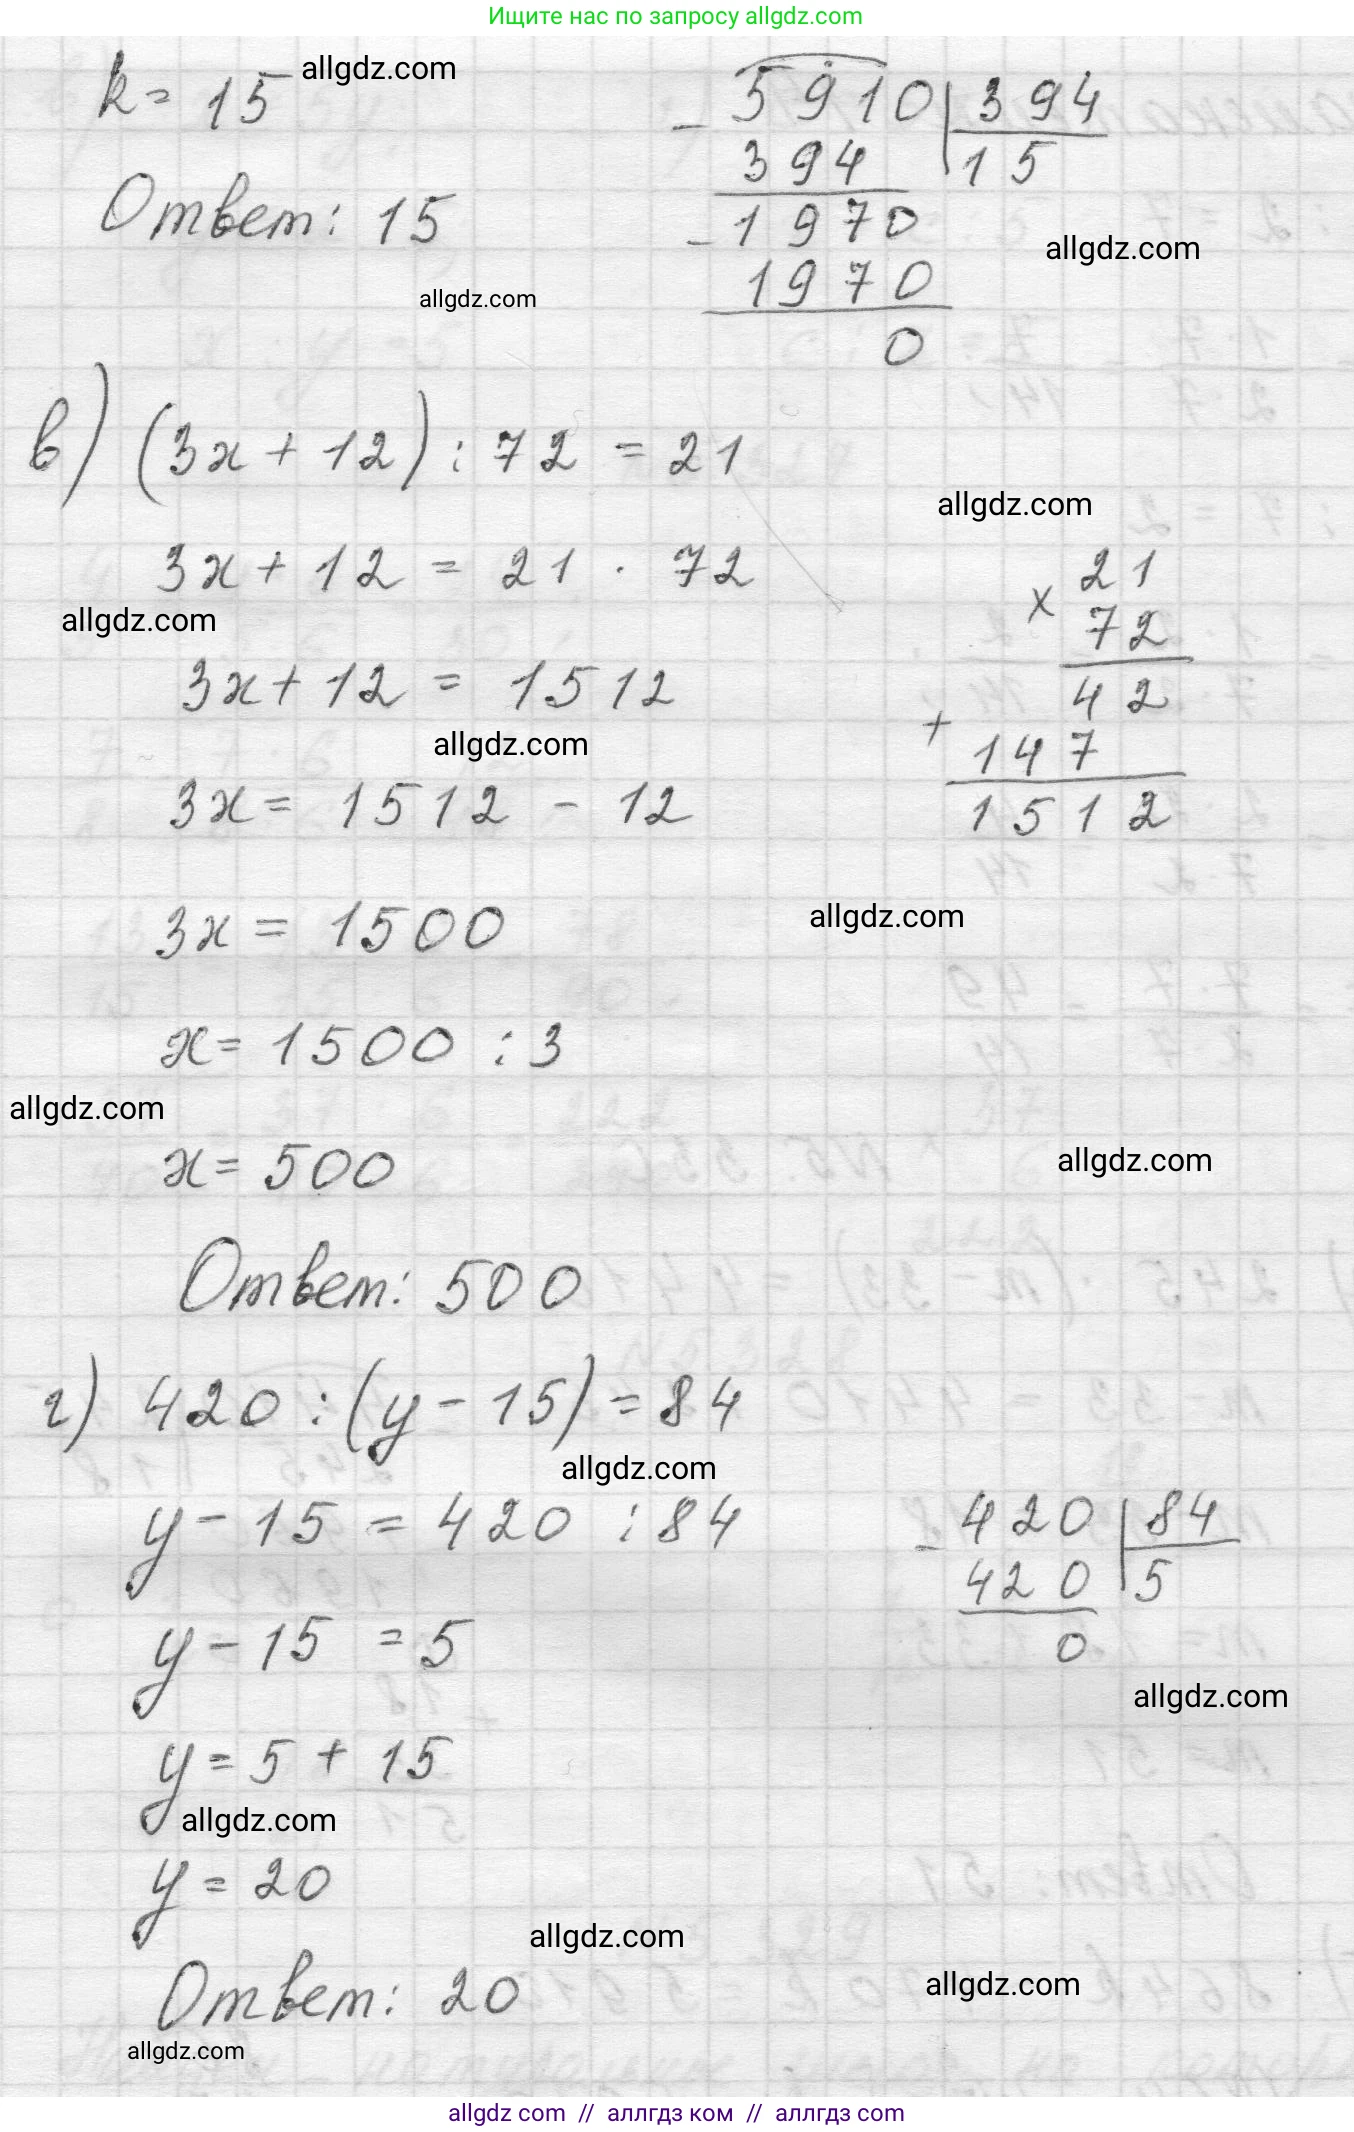 Ищите нас по запросу allgdz.com
k = 15
allgdz.com
Ответ: 15
allgdz.com
- 5910 | 394
394 | 15
- 1970
1970
0
allgdz.com
в) (3x + 12) : 72 = 21
allgdz.com
3x + 12 = 21 · 72
allgdz.com
3x + 12 = 1512
allgdz.com
3x = 1512 - 12
× 21
72
42
+ 147
1512
3x = 1500
allgdz.com
x = 1500 : 3
allgdz.com
x = 500
allgdz.com
Ответ: 500
г) 420 : (y - 15) = 84
allgdz.com
y - 15 = 420 : 84
- 420 | 84
420 | 5
0
y - 15 = 5
allgdz.com
y = 5 + 15
allgdz.com
y = 20
allgdz.com
Ответ: 20
allgdz.com
allgdz.com
allgdz com // аллгдз ком // аллгдз com